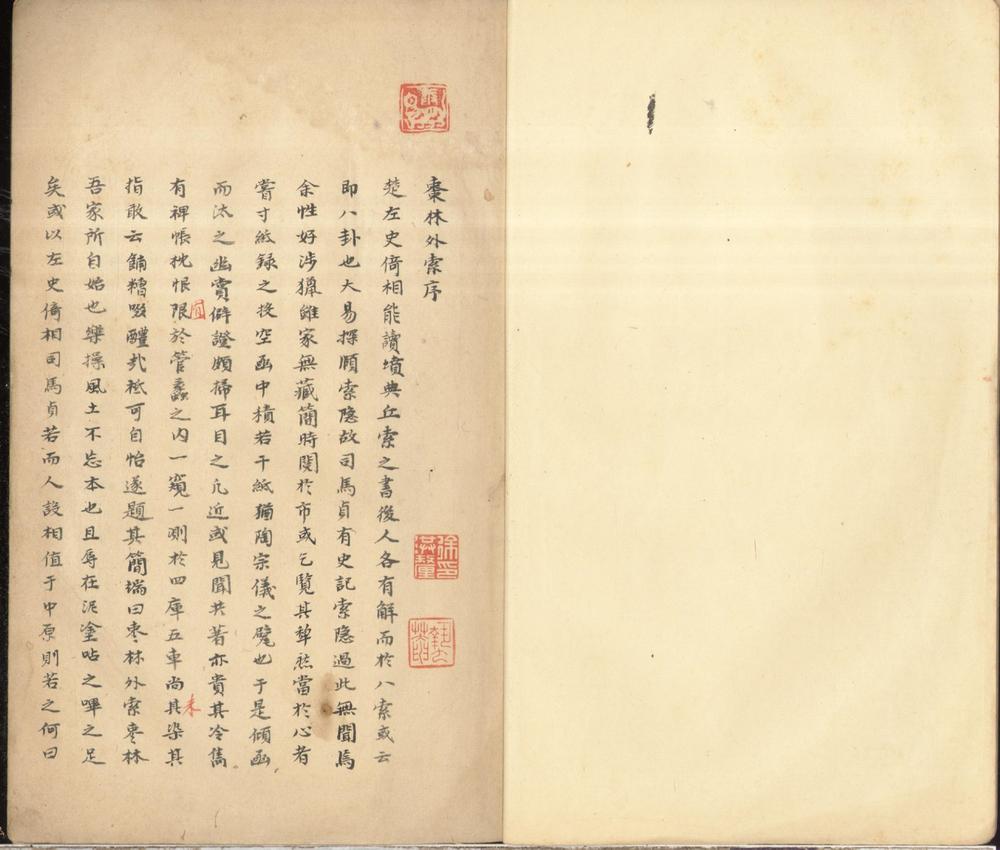 棗林外索序
楚左史倚相能讀墳典丘索之書後人各有解而於八索或云
即八卦也大易探賾索隱故司馬貞有史記索隱過此無聞焉
余性好涉獵雖家無藏簡時閱於市或乞覽其犂然當於心者
嘗寸紙錄之投空函中積若干紙猶陶宗儀之甓也于是傾函
而汰之幽賞僻證頗掃耳目之凡近或見聞共著亦貴其冷雋
有裨帳枕恨限於管蠡之内一窺一測於四庫五車尚其染其
宜
未
指敢云餔糟啜醨哉祇可自怡遂題其簡端曰枣林外索枣林
吾家所自始也樂操風土不忘本也且辱在泥塗呫之嗶之足
矣或以左史倚相司馬貞若而人設相值于中原則若之何曰